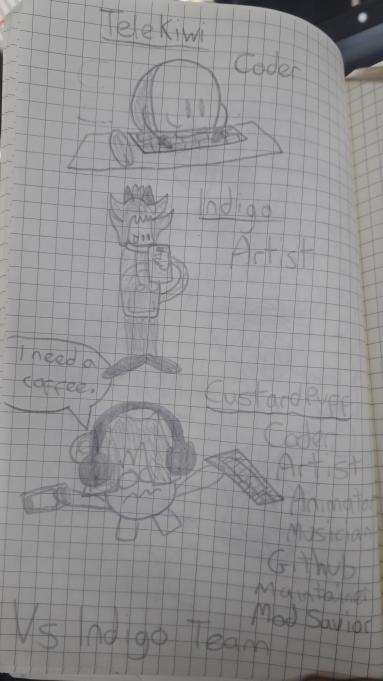 TeleKiwi
Coder
Indigo
Artist
I need a
coffee.
CustardPuff
Coder
Artist
Animator
Musician
Github
Maintainer
Mod Savior
Vs Indigo Team